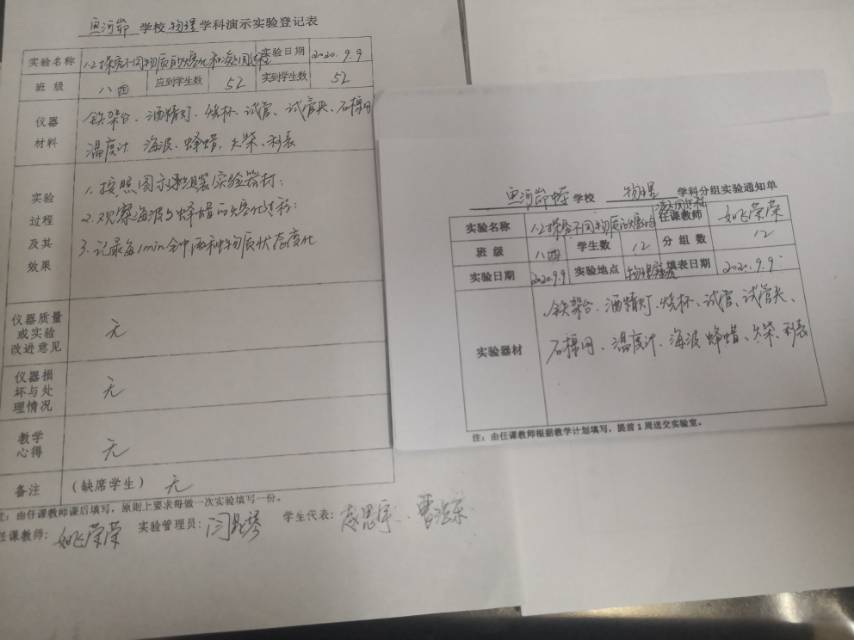 学校 物理 学科演示实验登记表
实验名称 1.2探究不同物质的熔化和凝固 实验日期 2020.9.9
班级 八四 应到学生数 52 实到学生数 52
仪器材料
铁架台、酒精灯、烧杯、试管、试管夹、石棉网
温度计 海波、蜂蜡、火柴、秒表
实验过程及其效果
1. 按照图示组装实验器材;
2. 观察海波与蜂蜡的熔化过程;
3. 记录每1min钟两种物质状态变化
仪器质量或实验改进意见 无
仪器损坏与处理情况 无
教学心得 无
备注 (缺席学生) 无
注:由任课教师课后填写,原则上要求每做一次实验填写一份。
任课教师: 荣荣 实验管理员: 学生代表:
学校 物理 学科分组实验通知单
实验名称 1.2探究不同物质的熔化 任课教师 荣荣
班级 八四 学生数 12 分组数 12
实验日期 2020.9.9 实验地点 物理 填表日期 2020.9.9
实验器材
铁架台、酒精灯、烧杯、试管、试管夹、
石棉网、温度计、海波 蜂蜡、火柴、秒表
注:由任课教师根据教学计划填写,提前1周送交实验室。